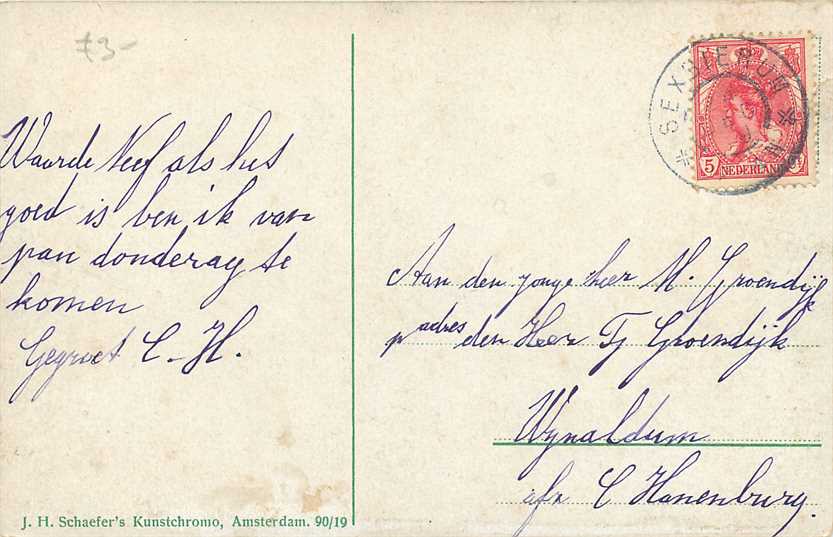 73-
Waarde Neef als het
goed is ben ik van
pan donderag te
komen
Gegroet C-H.
SEXBIERUM
5
NEDERLAND
Aan den jonge heer M. Groendijk
p adres den Heer Tj Groendijk
Wynaldum
afz C Hanenburg.
J. H. Schaefer's Kunstchromo, Amsterdam. 90/19